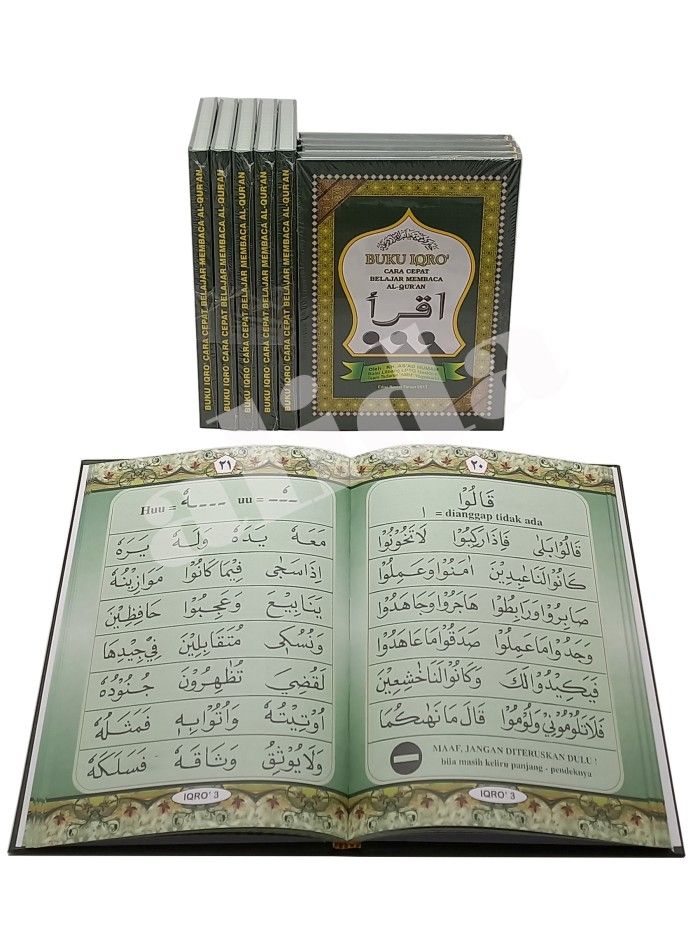 BUKU IQRO' CARA CEPAT BELAJAR MEMBACA AL-QUR'AN
BUKU IQRO' CARA CEPAT BELAJAR MEMBACA AL-QUR'AN
BUKU IQRO' CARA CEPAT BELAJAR MEMBACA AL-QUR'AN
BUKU IQRO' CARA CEPAT BELAJAR MEMBACA AL-QUR'AN
BUKU IQRO' CARA CEPAT BELAJAR MEMBACA AL-QUR'AN
BUKU IQRO'
CARA CEPAT
BELAJAR MEMBACA
AL-QUR'AN
اقرأ
alida
٢٠
قَالُوْا
ا = dianggap tidak ada
قَالُوْابَلٰى فَاِذَارَكِبُوْا لَاتَخُوْنُوْا
كَانُوْالَنَاعٰبِدِيْنَ اٰمَنُوْاوَعَمِلُوْا
صَابِرُوْاوَرَابِطُوْا هَاجَرُوْاوَجَاهَدُوْا
وَجَدُوْامَاعَمِلُوْا صَدَقُوْامَاعَاهَدُوْا
فَيَكِيْدُوْالَكَ وَكَانُوْالَنَاخٰشِعِيْنَ
فَلَاتَلُوْمُوْنِيْ وَلُوْمُوْا قَالَ مَانَهٰىكُمَا
MAAF, JANGAN DITERUSKAN DULU !
bila masih keliru panjang - pendeknya
IQRO' 3
٢١
Huu = ـهٗ uu = ـُ
مَعَهٗ يَدَهٗ وَلَهٗ يَرَهٗ
اِذَاسَجٰى فِيْمَاكَانُوْا مَوَازِيْنُهٗ
يَنَابِيْعَ وَعَجِبُوْا حَافِظِيْنَ
وَنُسُكِيْ مُتَقَابِلِيْنَ فِيْ جِيْدِهَا
لَقُضِيَ تُظْهِرُوْنَ جُنُوْدُهٗ
اُوْتِيْتُهٗ وَاُتُوْابِهٖ فَمَثَلُهٗ
وَلَايُوْثِقُ وَثَاقَهٗ فَسَلَكَهٗ
IQRO' 3